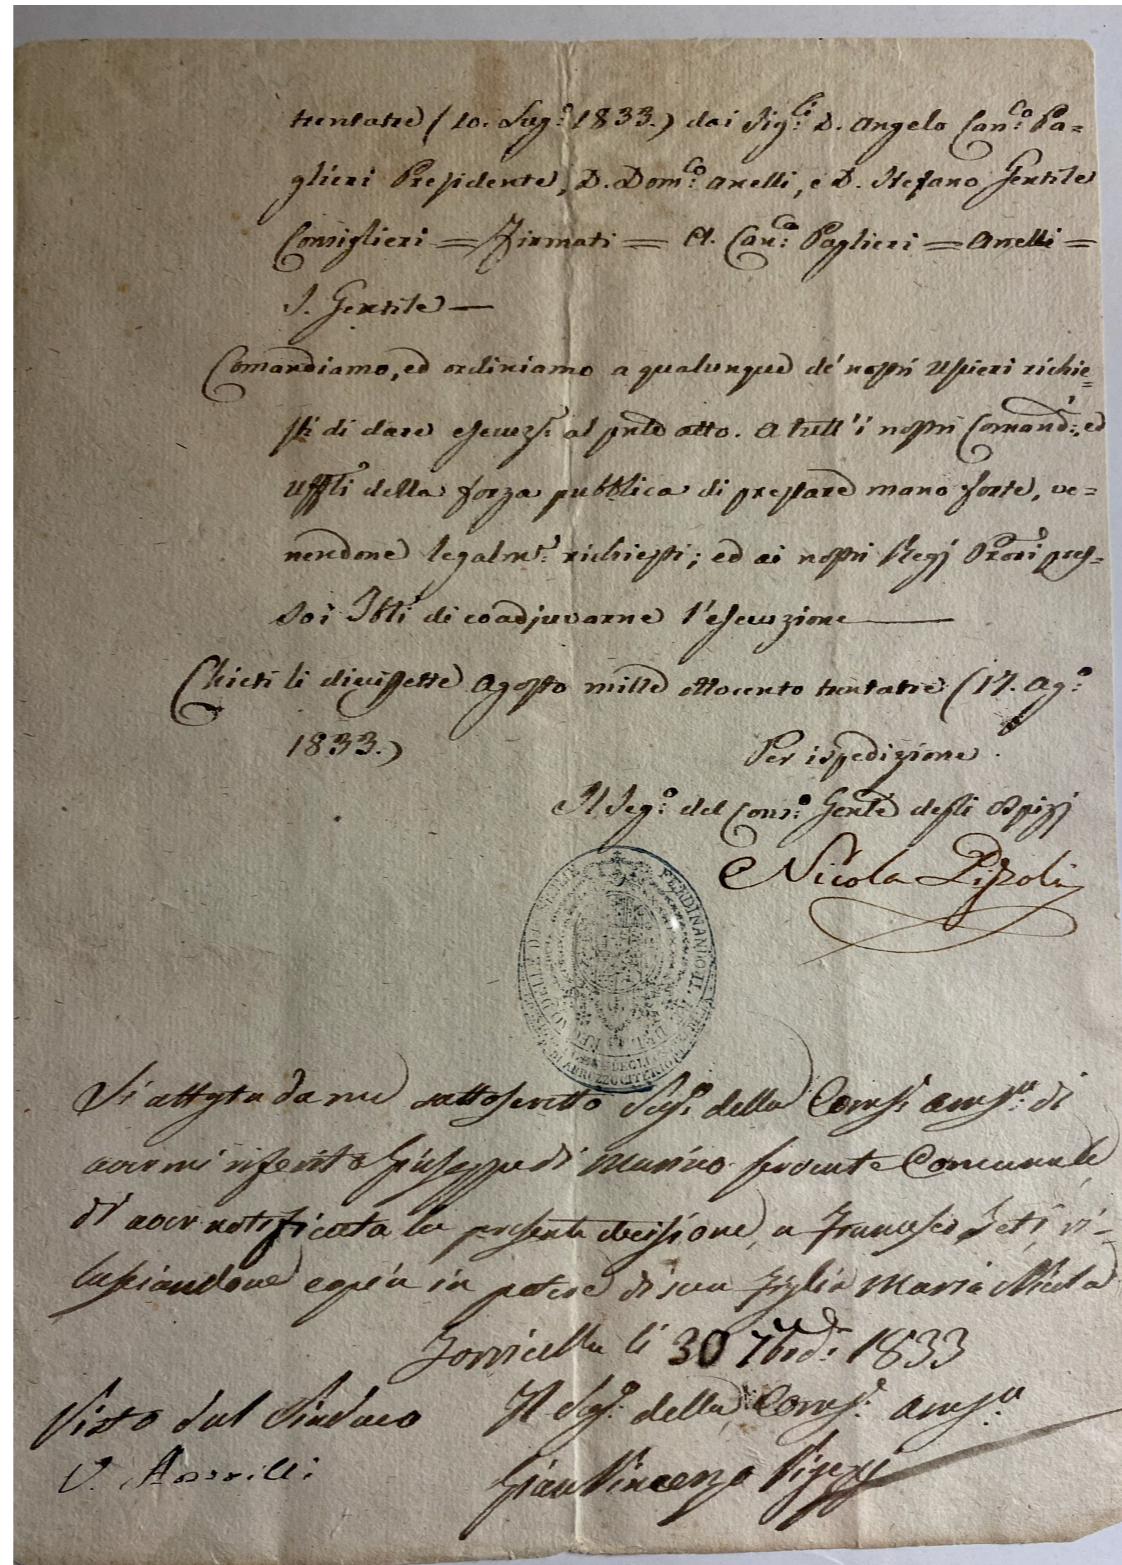 trentatre (10. Lug.º 1833.) dai Sig.ri D. Angelo Can.co Pa=
glieri Presidente, D. Dom.co Anelli, e D. Stefano Gentile
Consiglieri = Firmati = A. Can.co Paglieri = Anelli =
S. Gentile —
Comandiamo, ed ordiniamo a qualunque de' nostri Uscieri richie=
sti di dare esecuz.e al pnte atto. A tutt'i nostri Comand.ti, ed
Uffli della forza pubblica di prestare mano forte, ve=
nendone legalm.e richiesti; ed ai nostri Regj Prori pres=
so i Tbli di coadjuvarne l'esecuzione
Chieti li diciassette Agosto mille ottocento trentatre (17. Ag.º
1833.)
Per ispedizione
Il Seg.º del Cons.º Gen̄le degli Ospizj
Nicola
FERDINANDO II.
DEGLI
DI ABRUZZO CITERIORE
Si attesta da me sottoscritto Seg.º della Comm.e amm.va di
avermi riferito Giuseppe di Marino servente Comunale
di aver notificata la presente decisione, a Francesco Teti ri=
lasciandone copia in potere di sua figlia Maria Nicola
Torricella li 30 7bre 1833
Visto dal Sindaco
Il Seg.º della Comm.e amm.va
GianVincenzo